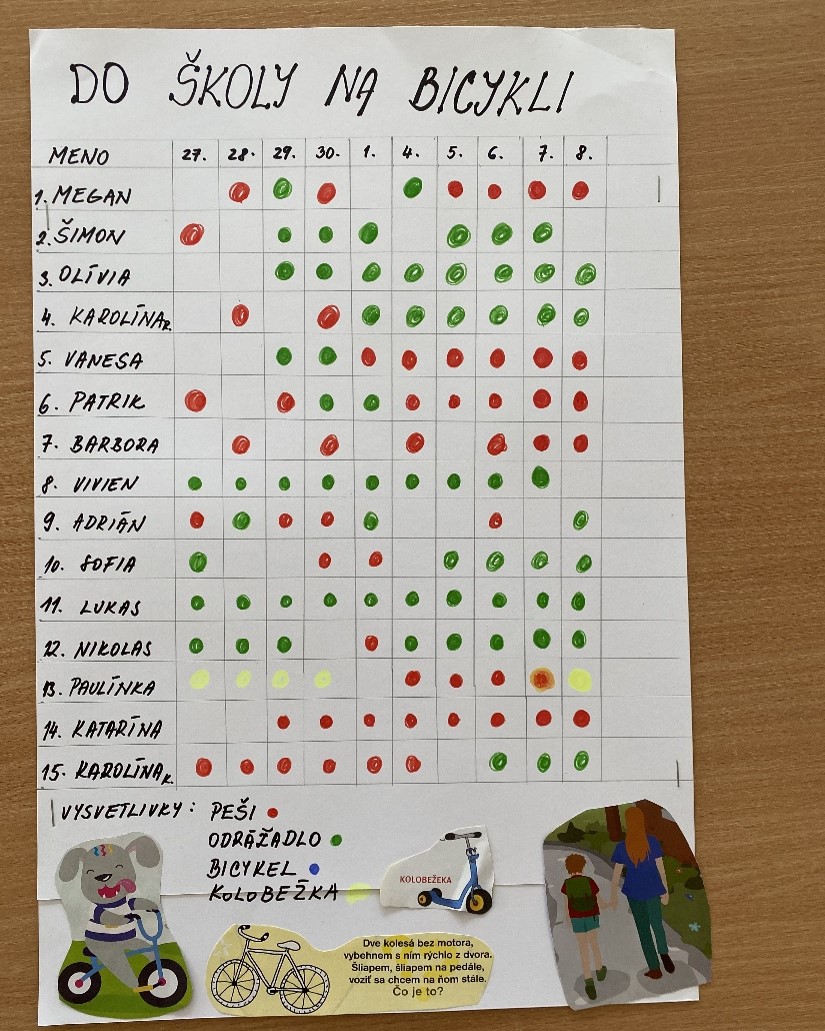 DO ŠKOLY NA BICYKLI
MENO 27. 28. 29. 30. 1. 4. 5. 6. 7. 8.
1. MEGAN
2. ŠIMON
3. OLÍVIA
4. KAROLÍNA R.
5. VANESA
6. PATRIK
7. BARBORA
8. VIVIEN
9. ADRIÁN
10. SOFIA
11. LUKAS
12. NIKOLAS
13. PAULÍNKA
14. KATARÍNA
15. KAROLÍNA K.
VYSVETLIVKY: PEŠI
ODRÁŽADLO
BICYKEL
KOLOBEŽKA
KOLOBEŽEKA
Dve kolesá bez motora,
vybehnem s ním rýchlo z dvora.
Šliapem, šliapem na pedále,
voziť sa chcem na ňom stále.
Čo je to?